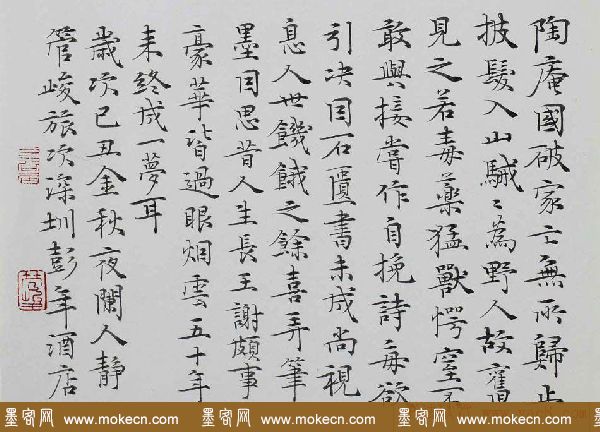 陶庵國破家亡無所歸止
披髮入山駴〻為野人故舊
見之若毒藥猛獸愕窒不
敢與接嘗作自挽詩每欲
引决因石匱書未成尚視
息人世饑餓之餘喜弄筆
墨因思昔人生長王謝頗事
豪華皆過眼烟雲五十年
来終成一夢耳
歲次己丑金秋夜闌人静
管峻旅次深圳彭年酒店
墨客网 www.mokecn.com 墨客网 www.mokecn.com 墨客网 www.mokecn.com